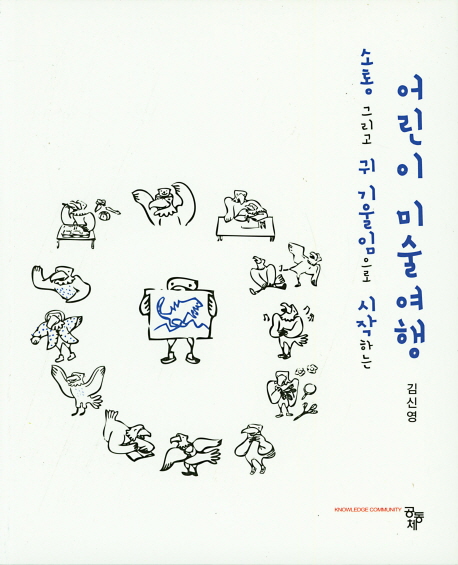 어린이 미술여행
소통 그리고 귀 기울임으로 시작하는
김신영
KNOWLEDGE COMMUNITY 공동체